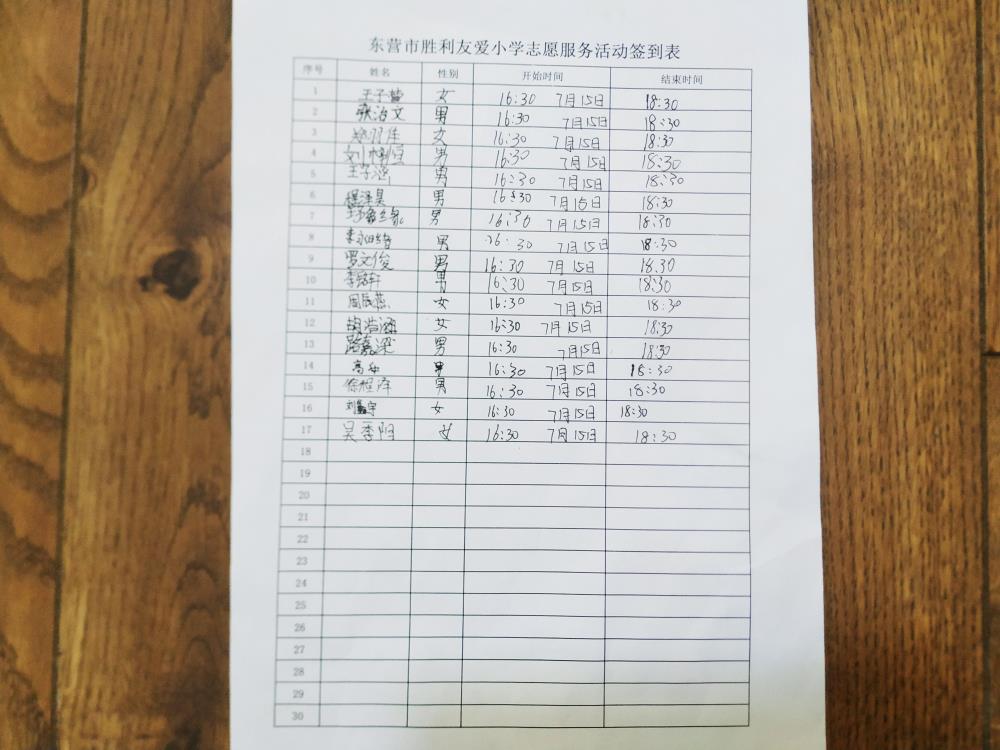 东营市胜利友爱小学志愿服务活动签到表
序号 姓名 性别 开始时间 结束时间
1 女 16:30 7月15日 18:30
2 张治文 男 16:30 7月15日 18:30
3 女 16:30 7月15日 18:30
4 男 16:30 7月15日 18:30
5 王子涵 男 16:30 7月15日 18:30
6 程泽昊 男 16:30 7月15日 18:30
7 男 16:30 7月15日 18:30
8 男 16:30 7月15日 18:30
9 罗文俊 男 16:30 7月15日 18:30
10 男 16:30 7月15日 18:30
11 周辰燕 女 16:30 7月15日 18:30
12 胡浩涵 女 16:30 7月15日 18:30
13 路嘉梁 男 16:30 7月15日 18:30
14 男 16:30 7月15日 18:30
15 男 16:30 7月15日 18:30
16 女 16:30 7月15日 18:30
17 吴季阳 女 16:30 7月15日 18:30
18
19
20
21
22
23
24
25
26
27
28
29
30